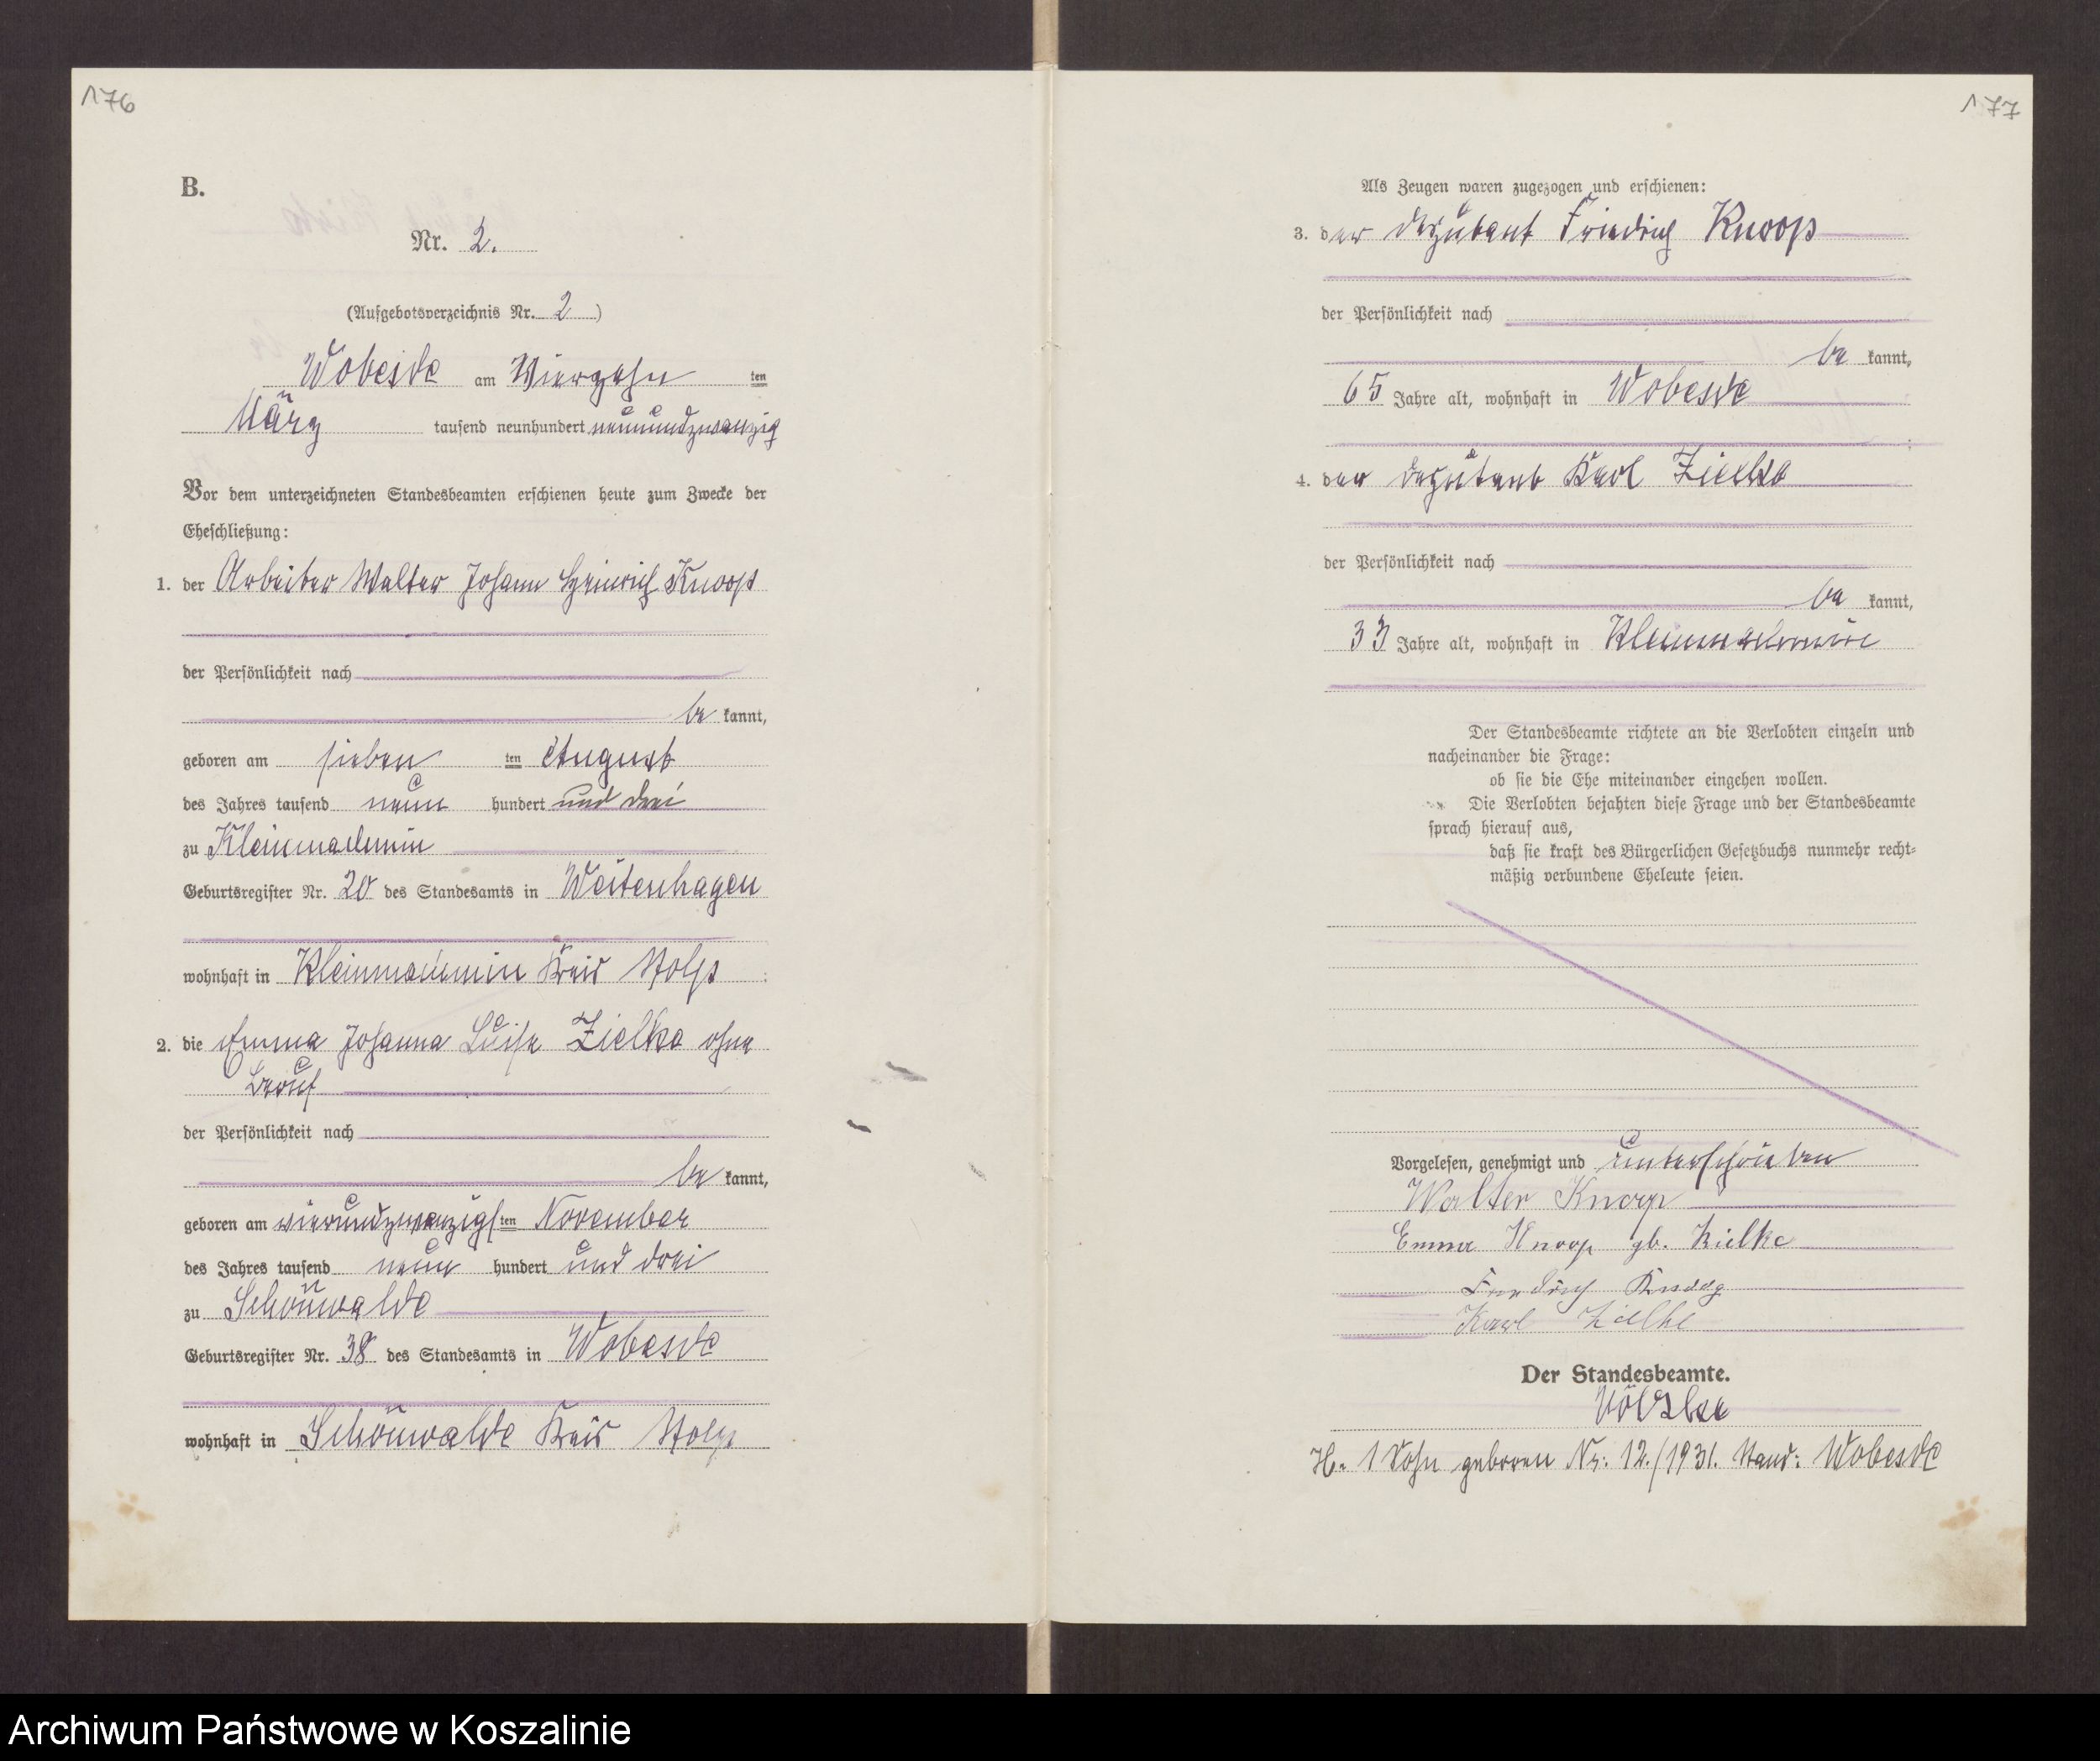 176
B.
Nr. 2.
(Aufgebotsverzeichnis Nr. 2)
Wobesde am Vierzehn ten
März tausend neunhundert neunundzwanzig
Vor dem unterzeichneten Standesbeamten erschienen heute zum Zwecke der
Eheschließung:
1. der Arbeiter Walter Johann Heinrich Knoop
der Persönlichkeit nach
be kannt,
geboren am sieben ten August
des Jahres tausend neun hundert und drei
zu Kleinmachmin
Geburtsregister Nr. 20 des Standesamts in Weitenhagen
wohnhaft in Kleinmachmin Kreis Stolp
2. die Emma Johanna Luise Zielke ohne
Beruf
der Persönlichkeit nach
be kannt,
geboren am vierundzwanzigs ten November
des Jahres tausend neun hundert und drei
zu Schönwalde
Geburtsregister Nr. 38 des Standesamts in Wobesde
wohnhaft in Schönwalde Kreis Stolp
177
Als Zeugen waren zugezogen und erschienen:
3. der Deputant Friedrich Knoop
der Persönlichkeit nach
be kannt,
65 Jahre alt, wohnhaft in Wobesde
4. der Deputant Karl Zielke
der Persönlichkeit nach
be kannt,
33 Jahre alt, wohnhaft in Kleinmachmin
Der Standesbeamte richtete an die Verlobten einzeln und
nacheinander die Frage:
ob sie die Ehe miteinander eingehen wollen.
Die Verlobten bejahten diese Frage und der Standesbeamte
sprach hierauf aus,
daß sie kraft des Bürgerlichen Gesetzbuchs nunmehr recht-
mäßig verbundene Eheleute seien.
Vorgelesen, genehmigt und unterschrieben
Walter Knoop
Emma Knoop gb. Zielke
Friedrich Knoop
Karl Zielke
Der Standesbeamte.
H. 1 Sohn geboren Nr: 12./1931. Stand: Wobesde
Archiwum Państwowe w Koszalinie